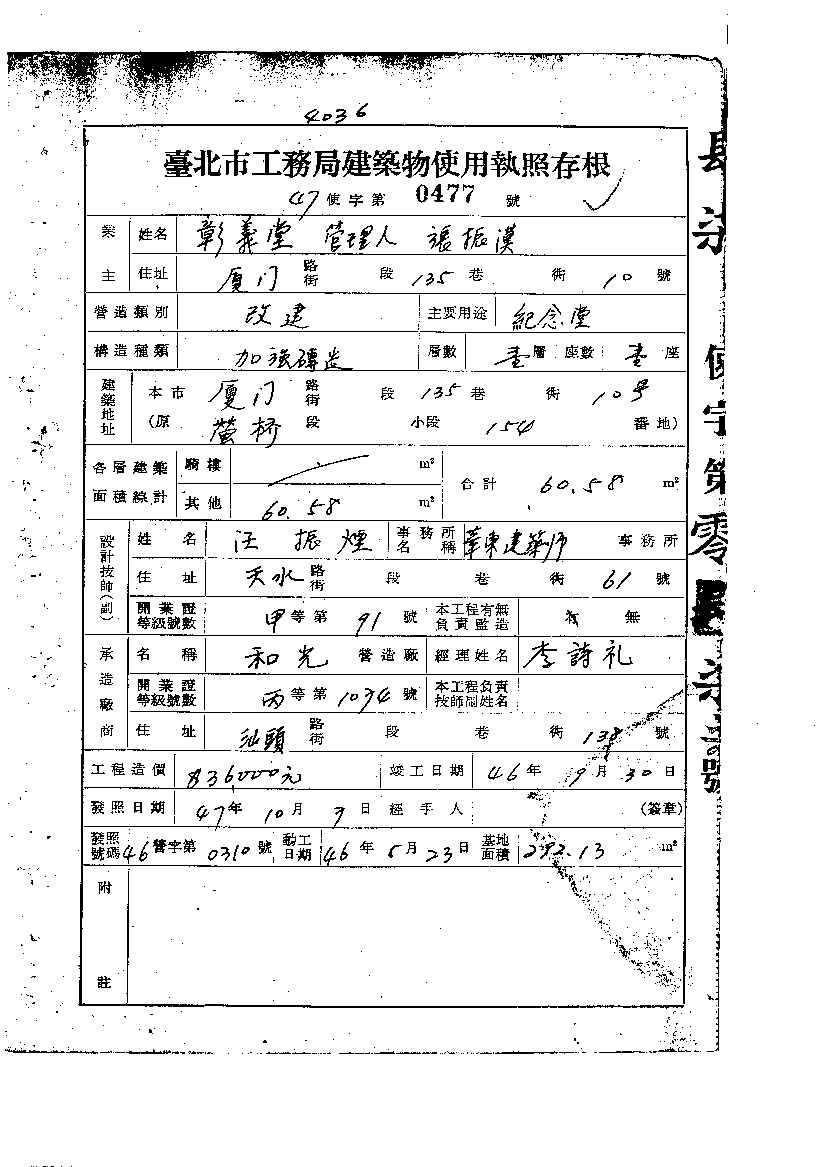 4036
臺北市工務局建築物使用執照存根
47使字第 0477 號
業主 姓名 彰義堂 管理人 張振漢
住址 厦门 路街 段 135 巷 衖 10 號
營造類別 改建 主要用途 紀念堂
構造種類 加強磚造 層數 壹層 座數 壹座
建築地址 本市 厦门 路街 段 135 巷 衖 10号
(原 螢桥 段 小段 154 番地)
各層建築面積總計 騎樓 m² 合計 60.58 m²
其他 60.58 m²
設計技師(副) 姓名 汪振煙 事務所名稱 華東建築师 事務所
住址 天水 路街 段 巷 衖 61 號
開業證等級號數 甲等第 91 號 本工程有無負責監造 有 無
承造廠商 名稱 和光 營造廠 經理姓名 李詩礼
開業證等級號數 丙等第 1034 號 本工程負責技師副姓名
住址 汕頭 路街 段 巷 衖 138 號
工程造價 836,000元 竣工日期 46年 9月 30日
發照日期 47年 10月 7日 經手人 (簽章)
發照號碼 46營字第 0310 號 動工日期 46年 5月 23日 基地面積 292.13 m²
附註
使字第零
號